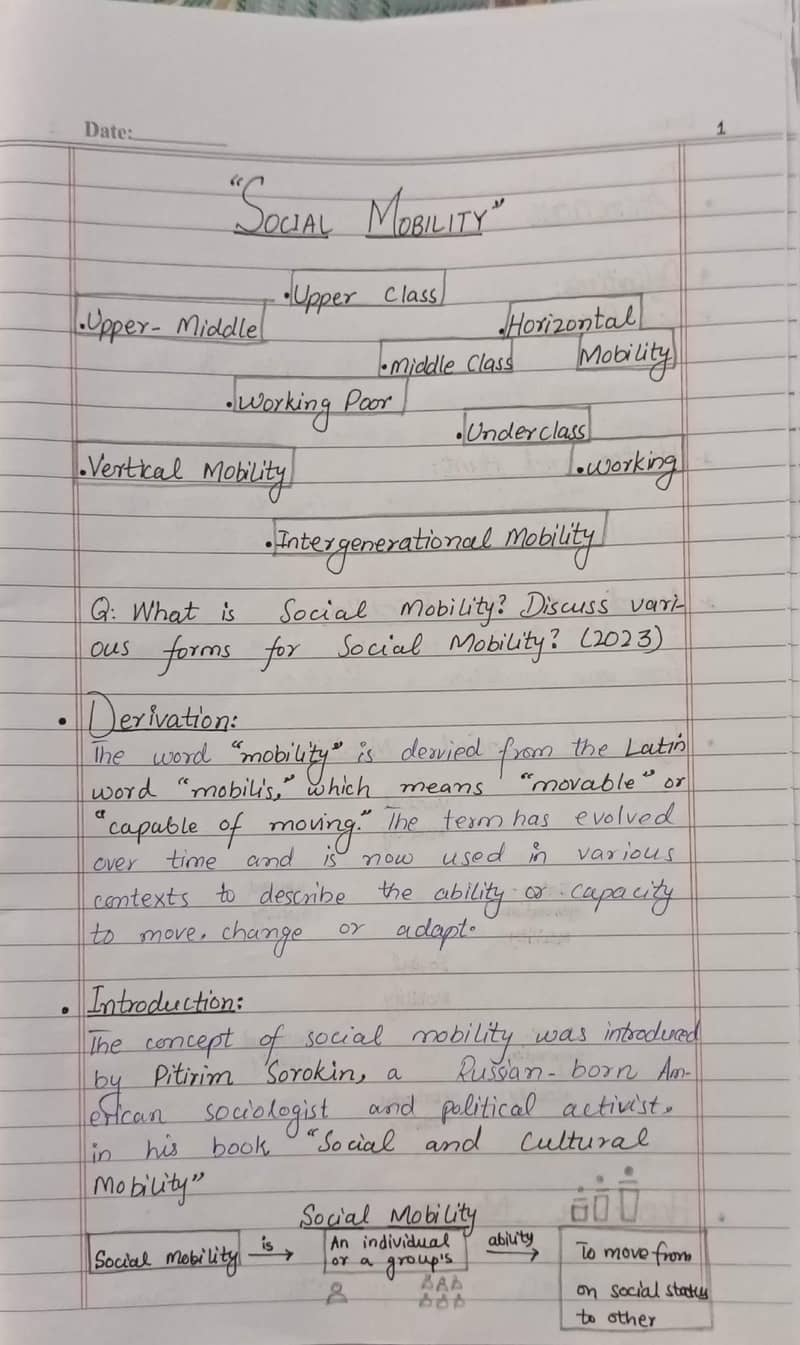 Date:
1
"SOCIAL MOBILITY"
•Upper Class
•Upper-Middle
•Horizontal
Mobility
•Middle Class
•Working Poor
•Underclass
•Vertical Mobility
•Working
•Intergenerational Mobility
Q: What is Social Mobility? Discuss vari-
ous forms for Social Mobility? (2023)
• Derivation:
The word "mobility" is dervied from the Latin
word "mobilis," which means "movable" or
"capable of moving." The term has evolved
over time and is now used in various
contexts to describe the ability or capacity
to move, change or adapt.
• Introduction:
The concept of social mobility was introduced
by Pitirim Sorokin, a Russian-born Am-
erican sociologist and political activist.
in his book "Social and Cultural
Mobility"
Social Mobility
Social mobility is → An individual or a group's ability → To move from
on social status
to other